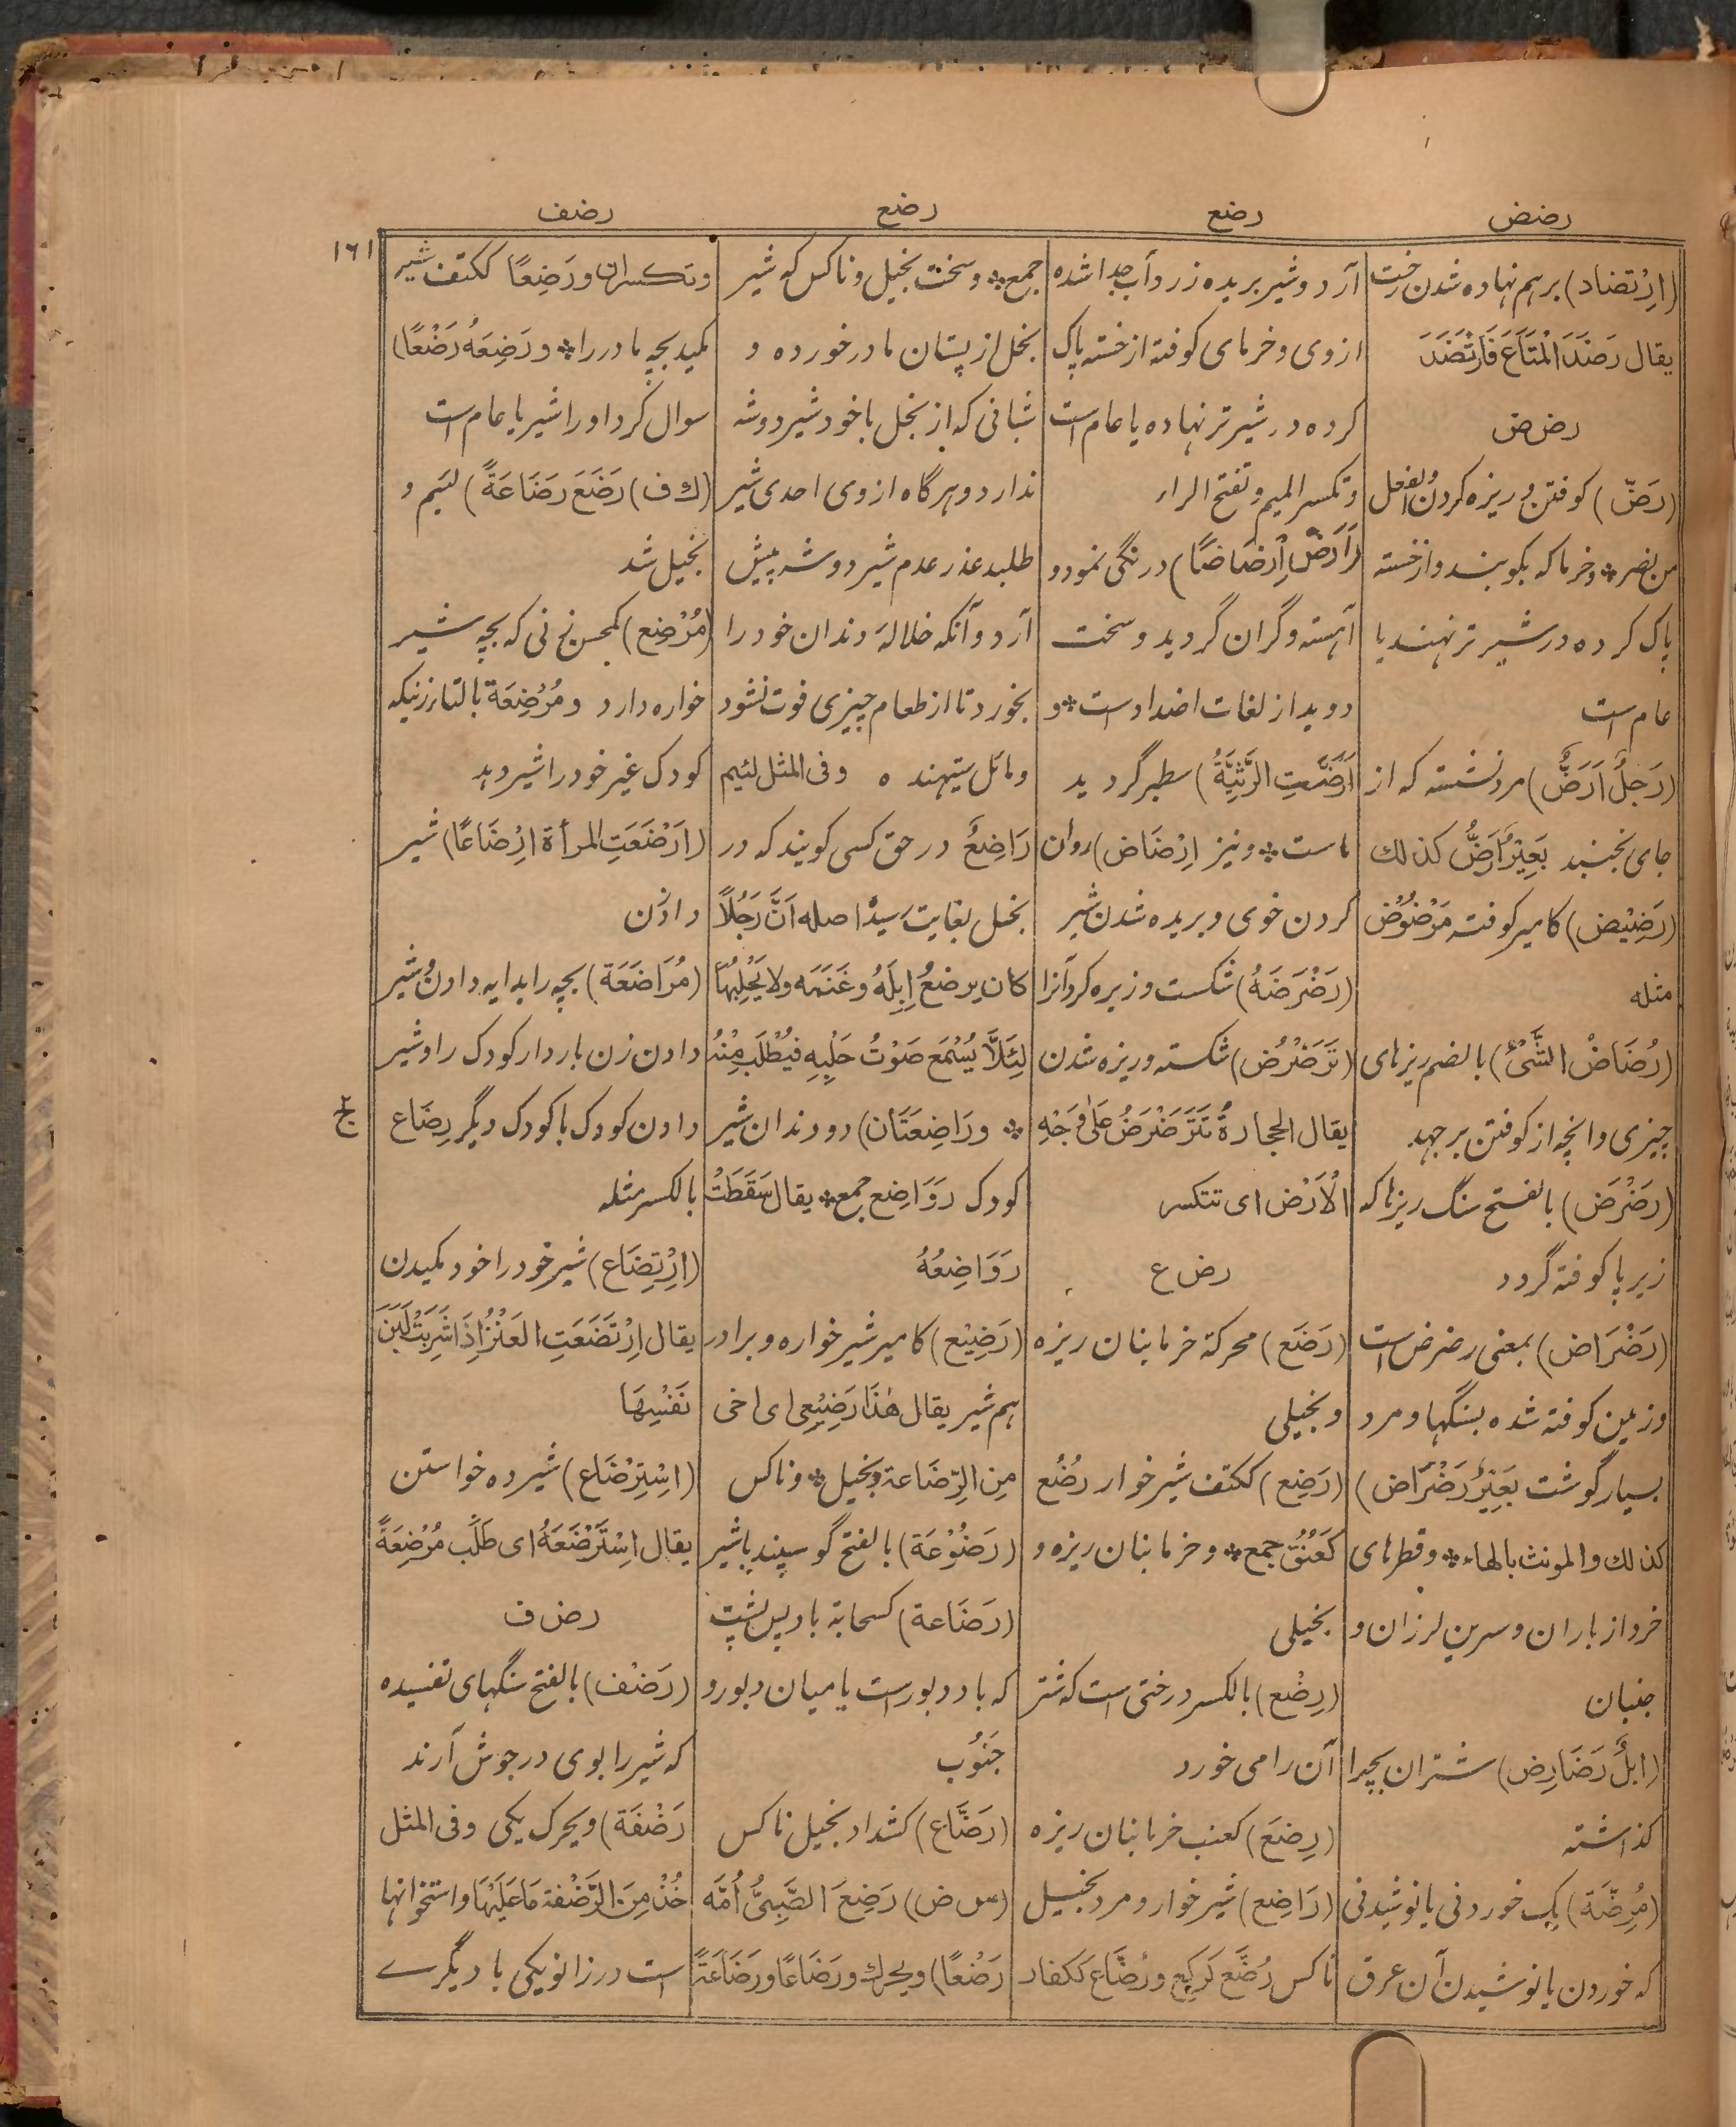 رضض
رضع
رضع
رضف
١٦١
(اِرْتضاد) برهم نهاده شدن رخت
يقال رَضَدَ المَتَاعَ فَارْتَضَدَ
رض ض
(رَضّ) كوفتن و ريزه كردن والفعل
من نصر * وخرما كه بكوبند و از خسته
پاك كرده در شير تر نهند يا
عام است
(رَجلٌ اَرَضُّ) مرد نشسته كه از
جاى نجنبد بَعِيْرٌ اَرَضُّ كذلك
(رَضِيْض) كامير كوفته مَرْضُوْض
مثله
(رُضَاضُ الشَّىْء) بالضم ريزهاى
چيزى وانچه از كوفتن برجهد
(رَضْرَض) بالفتح سنگ ريزها كه
زير پا كوفته گردد
(رَضْرَاض) بمعنى رضرض است
وزمين كوفته شده بسنگها و مرد
بسيار گوشت بَعِيْرٌ رَضْرَاض)
كذلك والمونث بالهاء * وقطرهاى
خرد از باران وسرين لرزان و
جنبان
(ابلٌ رَضَارِض) شتران بچرا
گذاشته
(مُرِضَّة) يك خوردنى يا نوشيدنى
كه خوردن يا نوشيدن آن عرق
آرد و شير بريده زرد و آب جدا شده
ازوى وخرماى كوفته از خسته پاك
كرده در شير تر نهاده يا عام است
وتكسر الميم وتفتح الراء
(اَرَضَّ اِرْضَاضًا) درنگى نمود و
آهسته و گران گرديد و سخت
دويد از لغات اضداد است * و
اَرَضَّتِ الرَّثِيَّةُ) سطبر گرديد
ماست * ونيز اِرْضَاض) روان
كردن خوى و بريده شدن شير
(رَضْرَضَهُ) شكست و ريزه كرد آنرا
(تَرَضْرُض) شكسته و ريزه شدن
يقال الحجارةُ تَتَرَضْرَضُ عَلٰى وَجْهِ
الْاَرْض اى تتكسر
رض ع
(رَضَع) محركة خرما بنان ريزه
وبخيلى
(رَضِع) ككتف شير خوار رُضُع
كَعُنُق جمع * وخرما بنان ريزه و
بخيلى
(رِضْع) بالكسر درختى است كه شتر
آن را مى خورد
(رِضَع) كعنب خرما بنان ريزه
(رَاضِع) شير خوار و مرد بخيل
ناكس رُضَّع كَرُكَّع ورُضَّاع ككفار
جمع * وسخت بخيل و ناكس كه شير
بخل از پستان مادر خورده و
شبانى كه از بخل با خود شير دوشه
ندارد و هر گاه ازوى احدى شير
طلبد عذر عدم شير دوشه پيش
آرد و آنكه خلاله دندان خود را
بخورد تا از طعام چيزى فوت نشود
و مائل ستيهنده وفى المثل لئيم
رَاضِعٌ در حق كسى گويند كه در
بخل بغايت رسيد اصله اَنَّ رَجُلًا
كان يرضعُ اِبِلَهُ وغَنَمَه ولا يَحْلِبُهَا
لِئَلَّا يُسْمَع صَوْتُ حَلْبِهِ فيُطْلَب مِنْهُ
* ورَاضِعَتَان) دو دندان شير
كودك رَوَاضِع جمع * يقال سَقَطَتْ
رَوَاضِعُهُ
(رَضِيْع) كامير شير خواره و برادر
هم شير يقال هٰذَا رَضِيْعِى اى اخى
مِنِ الرّضَاعة وبخيل * وناكس
(رَضُوْعَة) بالفتح گوسپند با شير
(رَضَاعة) كسحابة باد پس پشت
كه باد دبور است يا ميان دبور و
جَنُوْب
(رَضَّاع) كشداد بخيل ناكس
(س ض) رَضِعَ الصَّبِىُّ اُمَّه
رَضْعًا) ويحرك ورَضَاعًا ورَضَاعَةً
وتكسران ورَضِعًا ككتف شير
مكيد بچه مادر را * ورَضِعَهُ رَضْعًا)
سوال كرد او را شير يا عام است
(ك ف) رَضَعَ رَضَاعَةً) لئيم و
بخيل شد
(مُرْضِع) كمحسن زنى كه بچه شير
خواره دارد ومُرْضِعَة بالتاء زنيكه
كودك غير خود را شير دهد
(اَرْضَعَتِ المرأة اِرْضَاعًا) شير
دادن
(مُرَاضَعَة) بچه را بدايه دادن و شير
دادن زن باردار كودك را و شير
دادن كودك با كودك ديگر رِضَاع
بالكسر مثله
(اِرْتِضَاع) شير خود را خود مكيدن
يقال اِرْتَضَعَتِ العَنْزُ اِذَا شَرِبَتْ لَبَنَ
نَفْسِهَا
(اسْتِرْضَاع) شير ده خواستن
يقال اسْتَرْضَعَهُ اى طَلَبَ مُرْضِعَةً
رض ف
(رَضْف) بالفتح سنگهاى تفسيده
كه شير را بوى در جوش آرند
رَضْفَة) ويحرك يكى وفى المثل
خُذْ مِنَ الرَّضْفة مَا عَلَيْهَا واستخوانها
است در زانو يكى با ديگرے